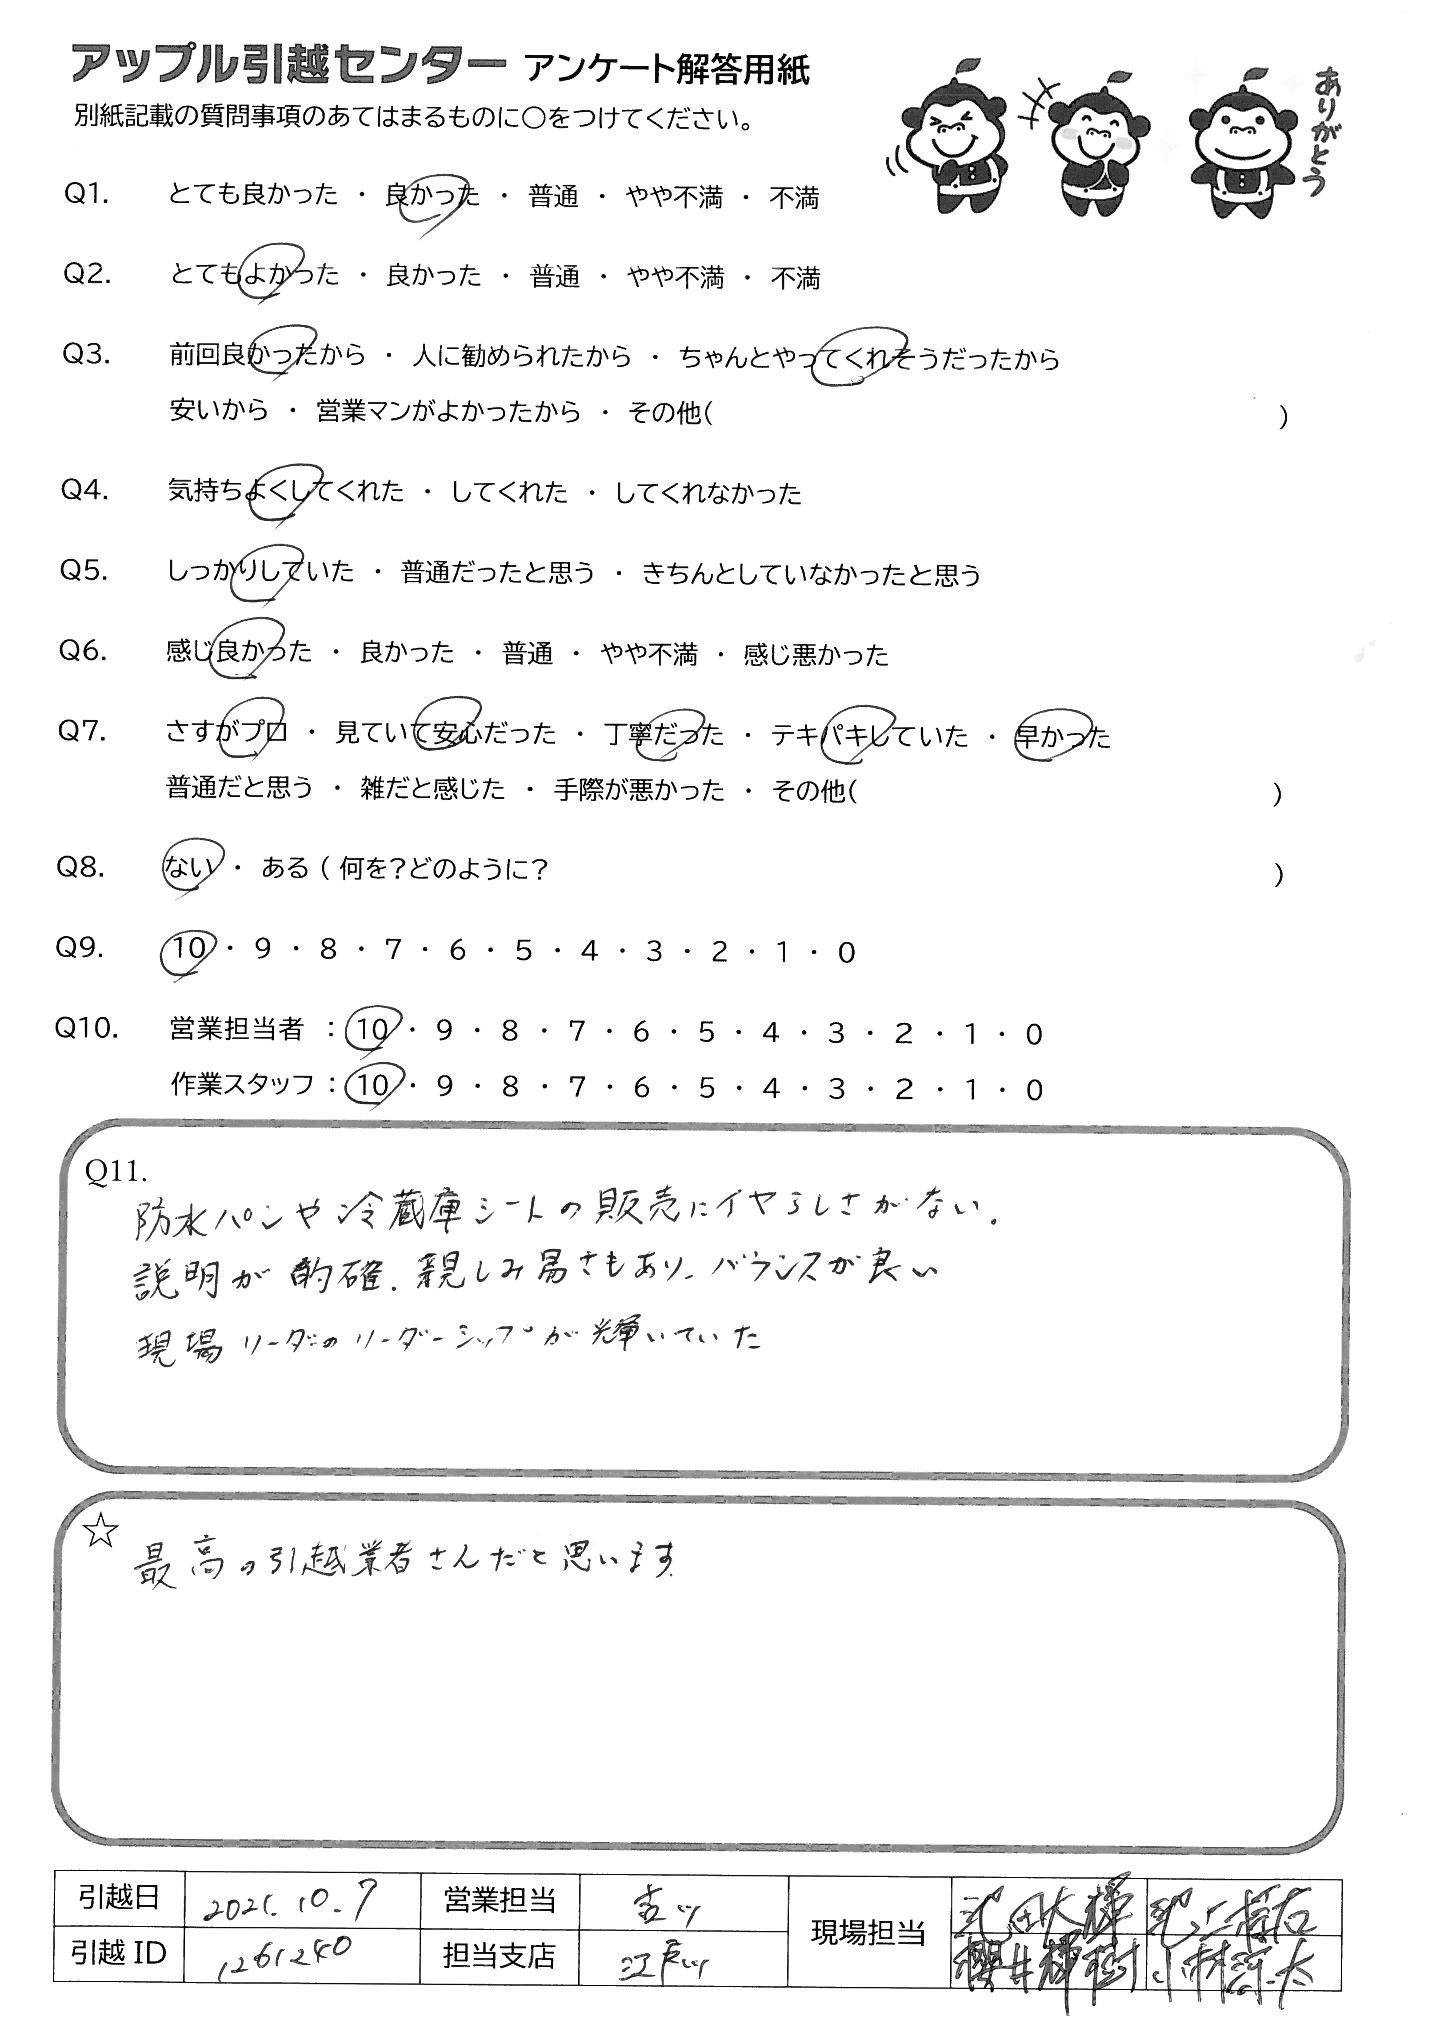 アップル引越センター アンケート解答用紙
別紙記載の質問事項のあてはまるものに○をつけてください。
ありがとう
Q1. とても良かった ・ 良かった ・ 普通 ・ やや不満 ・ 不満
Q2. とてもよかった ・ 良かった ・ 普通 ・ やや不満 ・ 不満
Q3. 前回良かったから ・ 人に勧められたから ・ ちゃんとやってくれそうだったから
安いから ・ 営業マンがよかったから ・ その他( )
Q4. 気持ちよくしてくれた ・ してくれた ・ してくれなかった
Q5. しっかりしていた ・ 普通だったと思う ・ きちんとしていなかったと思う
Q6. 感じ良かった ・ 良かった ・ 普通 ・ やや不満 ・ 感じ悪かった
Q7. さすがプロ ・ 見ていて安心だった ・ 丁寧だった ・ テキパキしていた ・ 早かった
普通だと思う ・ 雑だと感じた ・ 手際が悪かった ・ その他( )
Q8. ない ・ ある ( 何を?どのように? )
Q9. 10 ・ 9 ・ 8 ・ 7 ・ 6 ・ 5 ・ 4 ・ 3 ・ 2 ・ 1 ・ 0
Q10. 営業担当者 : 10 ・ 9 ・ 8 ・ 7 ・ 6 ・ 5 ・ 4 ・ 3 ・ 2 ・ 1 ・ 0
作業スタッフ : 10 ・ 9 ・ 8 ・ 7 ・ 6 ・ 5 ・ 4 ・ 3 ・ 2 ・ 1 ・ 0
Q11.
防水パンや冷蔵庫シートの販売にイヤらしさがない.
説明が的確. 親しみ易さもあり、バランスが良い
現場リーダーのリーダーシップが輝いていた
☆
最高の引越業者さんだと思います
引越日 2021.10.7 営業担当 吉川 現場担当
引越ID 1261240 担当支店 江戸川
櫻井輝樹